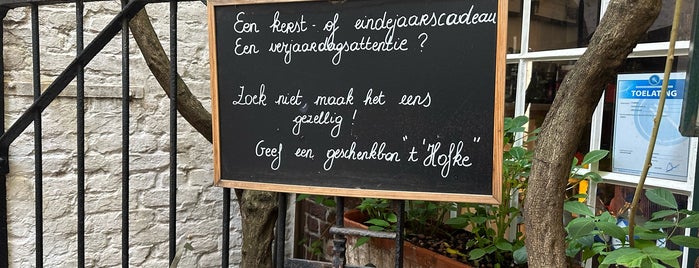 Een kerst- of eindejaarscadeau
Een verjaardagsattentie ?
Zoek niet maak het eens
gezellig !
Geef een geschenkbon "t 'Hofke"
TOELATING